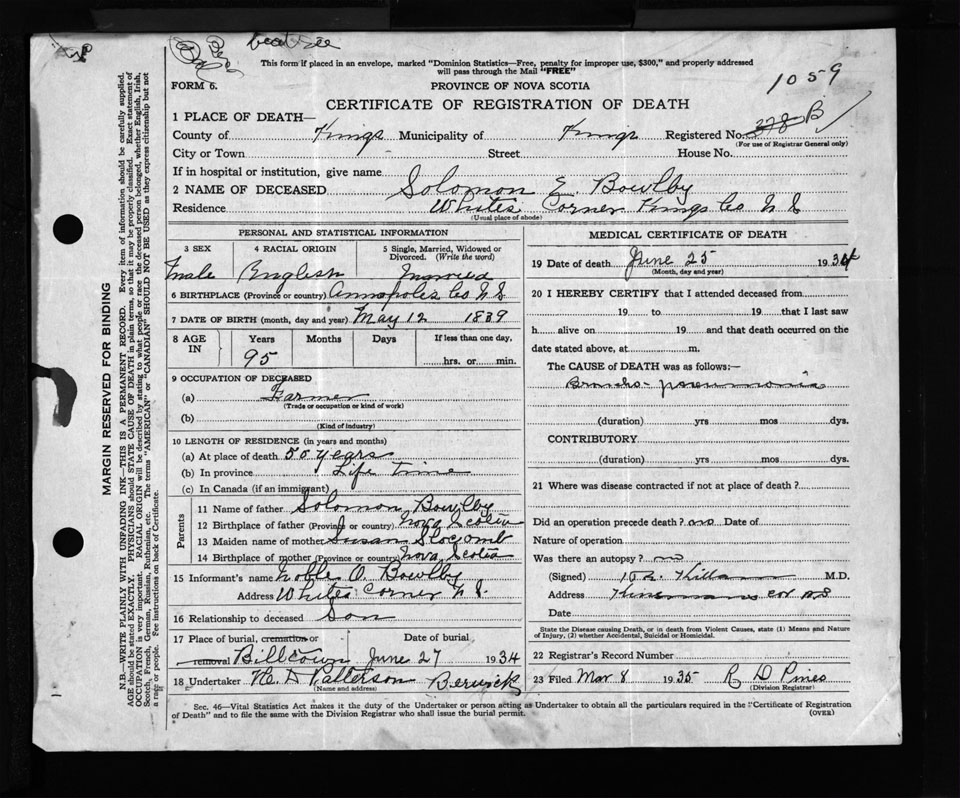 This form if placed in an envelope, marked "Dominion Statistics—Free, penalty for improper use, $300," and properly addressed
will pass through the Mail "FREE"
FORM 6.
PROVINCE OF NOVA SCOTIA
1059
CERTIFICATE OF REGISTRATION OF DEATH
1 PLACE OF DEATH—
County of Kings Municipality of Kings Registered No. 378 B
(For use of Registrar General only)
City or Town Street House No.
If in hospital or institution, give name
2 NAME OF DECEASED Solomon E. Bowlby
Residence Whites Corner Kings Co N S
(Usual place of abode)
PERSONAL AND STATISTICAL INFORMATION
3 SEX 4 RACIAL ORIGIN 5 Single, Married, Widowed or
Divorced. (Write the word)
Male English Married
6 BIRTHPLACE (Province or country) Annapolis Co N S
7 DATE OF BIRTH (month, day and year) May 12 1839
8 AGE IN Years Months Days If less than one day,
95 hrs. or min.
9 OCCUPATION OF DECEASED
(a) Farmer
(Trade or occupation or kind of work)
(b)
(Kind of industry)
10 LENGTH OF RESIDENCE (in years and months)
(a) At place of death 50 years
(b) In province Life time
(c) In Canada (if an immigrant)
Parents
11 Name of father Solomon Bowlby
12 Birthplace of father (Province or country) Nova Scotia
13 Maiden name of mother Susan Slocomb
14 Birthplace of mother (Province or country) Nova Scotia
15 Informant's name Noble O. Bowlby
Address Whites Corner N. S.
16 Relationship to deceased Son
17 Place of burial, cremation or Date of burial
removal Billtown June 27 1934
18 Undertaker H. D Patterson Berwick
(Name and address)
MEDICAL CERTIFICATE OF DEATH
19 Date of death June 25 1934
(Month, day and year)
20 I HEREBY CERTIFY that I attended deceased from
19 to 19 that I last saw
h alive on 19 and that death occurred on the
date stated above, at m.
The CAUSE of DEATH was as follows:—
Broncho-pneumonia
(duration) yrs mos dys.
CONTRIBUTORY
(duration) yrs mos dys.
21 Where was disease contracted if not at place of death?
Did an operation precede death? no Date of
Nature of operation
Was there an autopsy? no
(Signed) Killam M.D.
Address Kinsmans Cor NS
Date
State the Disease causing Death, or in death from Violent Causes, state (1) Means and Nature
of Injury, (2) whether Accidental, Suicidal or Homicidal.
22 Registrar's Record Number
23 Filed Mar 8 1935 R D Pines
(Division Registrar)
Sec. 46—Vital Statistics Act makes it the duty of the Undertaker or person acting as Undertaker to obtain all the particulars required in the "Certificate of Registration
of Death" and to file the same with the Division Registrar who shall issue the burial permit. (OVER)
MARGIN RESERVED FOR BINDING
N.B.—WRITE PLAINLY WITH UNFADING INK—THIS IS A PERMANENT RECORD. Every item of information should be carefully supplied.
AGE should be stated EXACTLY. PHYSICIANS should STATE CAUSE OF DEATH in plain terms, so that it may be properly classified. Exact statement of
OCCUPATION is very important. RACIAL ORIGIN will be described by stating to what people or race the deceased person belonged, whether English, Irish,
Scotch, French, German, Russian, Ruthenian, etc. The terms "AMERICAN" or "CANADIAN" SHOULD NOT BE USED as they express citizenship but not
a race or people. Fee instructions on back of Certificate.